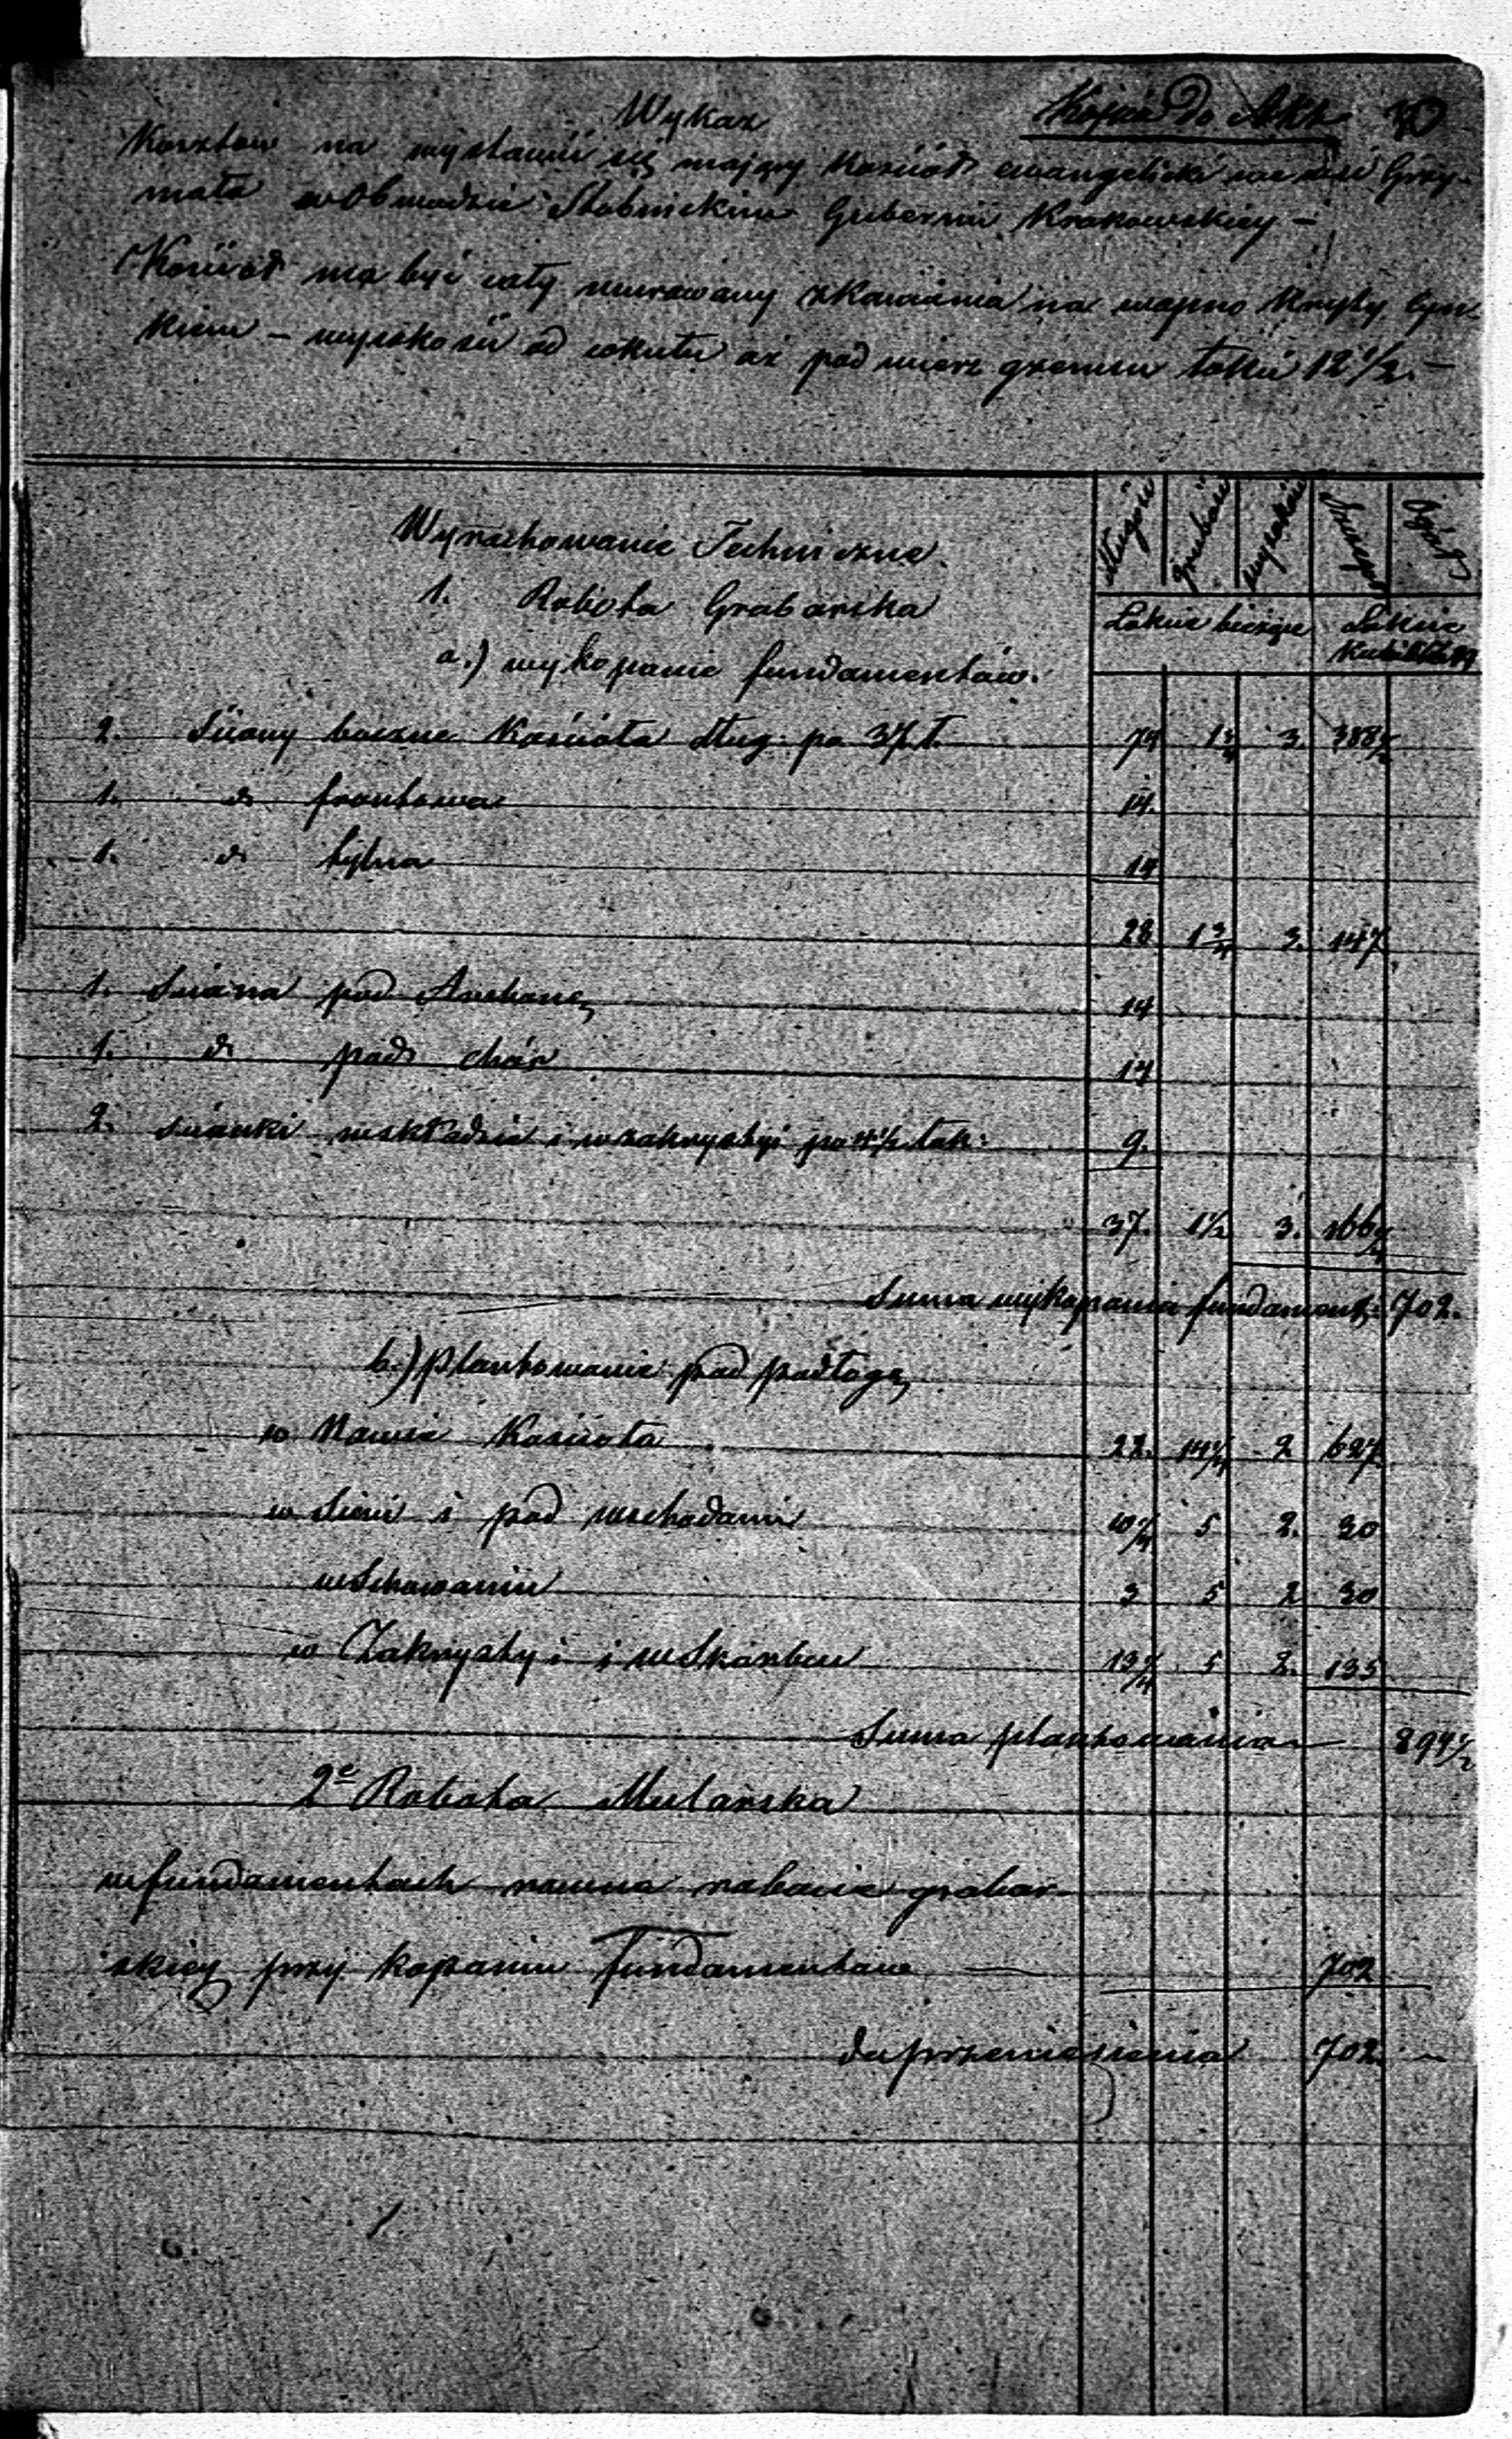 Kopia do Akt 70
Wykaz
Kosztow na wystawić się mający Kościół ewangelicki we wsi Grzy-
mała w Obwodzie Stobnickim Gubernii Krakowskiey –
Kościoł ma być cały murowany z Kamienia na wapno kryty Gon-
kiem – wysokość od cokułu aż pod wierz gzemsu łokci 12 1/2. –
Długość grubość wysokość Ogół
Wyrachowanie Techniczne
1. Robota Grabarska
Łokcie bieżące Łokcie
a.) wykopanie fundamentów.
2. Sciany boczne Kościoła dług. po 37 ł. 74 1 3/4 3. 388 1/2
1. d frontowa 14.
1. d tylna 14
28 1 3/4 3. 147
1. Sciana pod Ambonę 14
1. d pod chór 14
2. scianki w składzie i w zakrystyi po 4 1/2 łok: 9.
37. 1 1/2 3. 166 1/2
Suma wykopania fundament: 702.
b.) Plantowanie pod podłogę
w Nawie Kościoła 22. 14 1/4 2 627
w Sieni i pod wschodami 5 2.
w Schowaniu 3 5 2 30
w Zakrystyi i w Skarbcu 13 1/2 5 2. 135
Suma plantowania 894 1/2
2e Robota Mularska
w fundamentach rowna robocie grabar-
skiey przy kopaniu fundamentow – 702
do przeniesienia 702. –